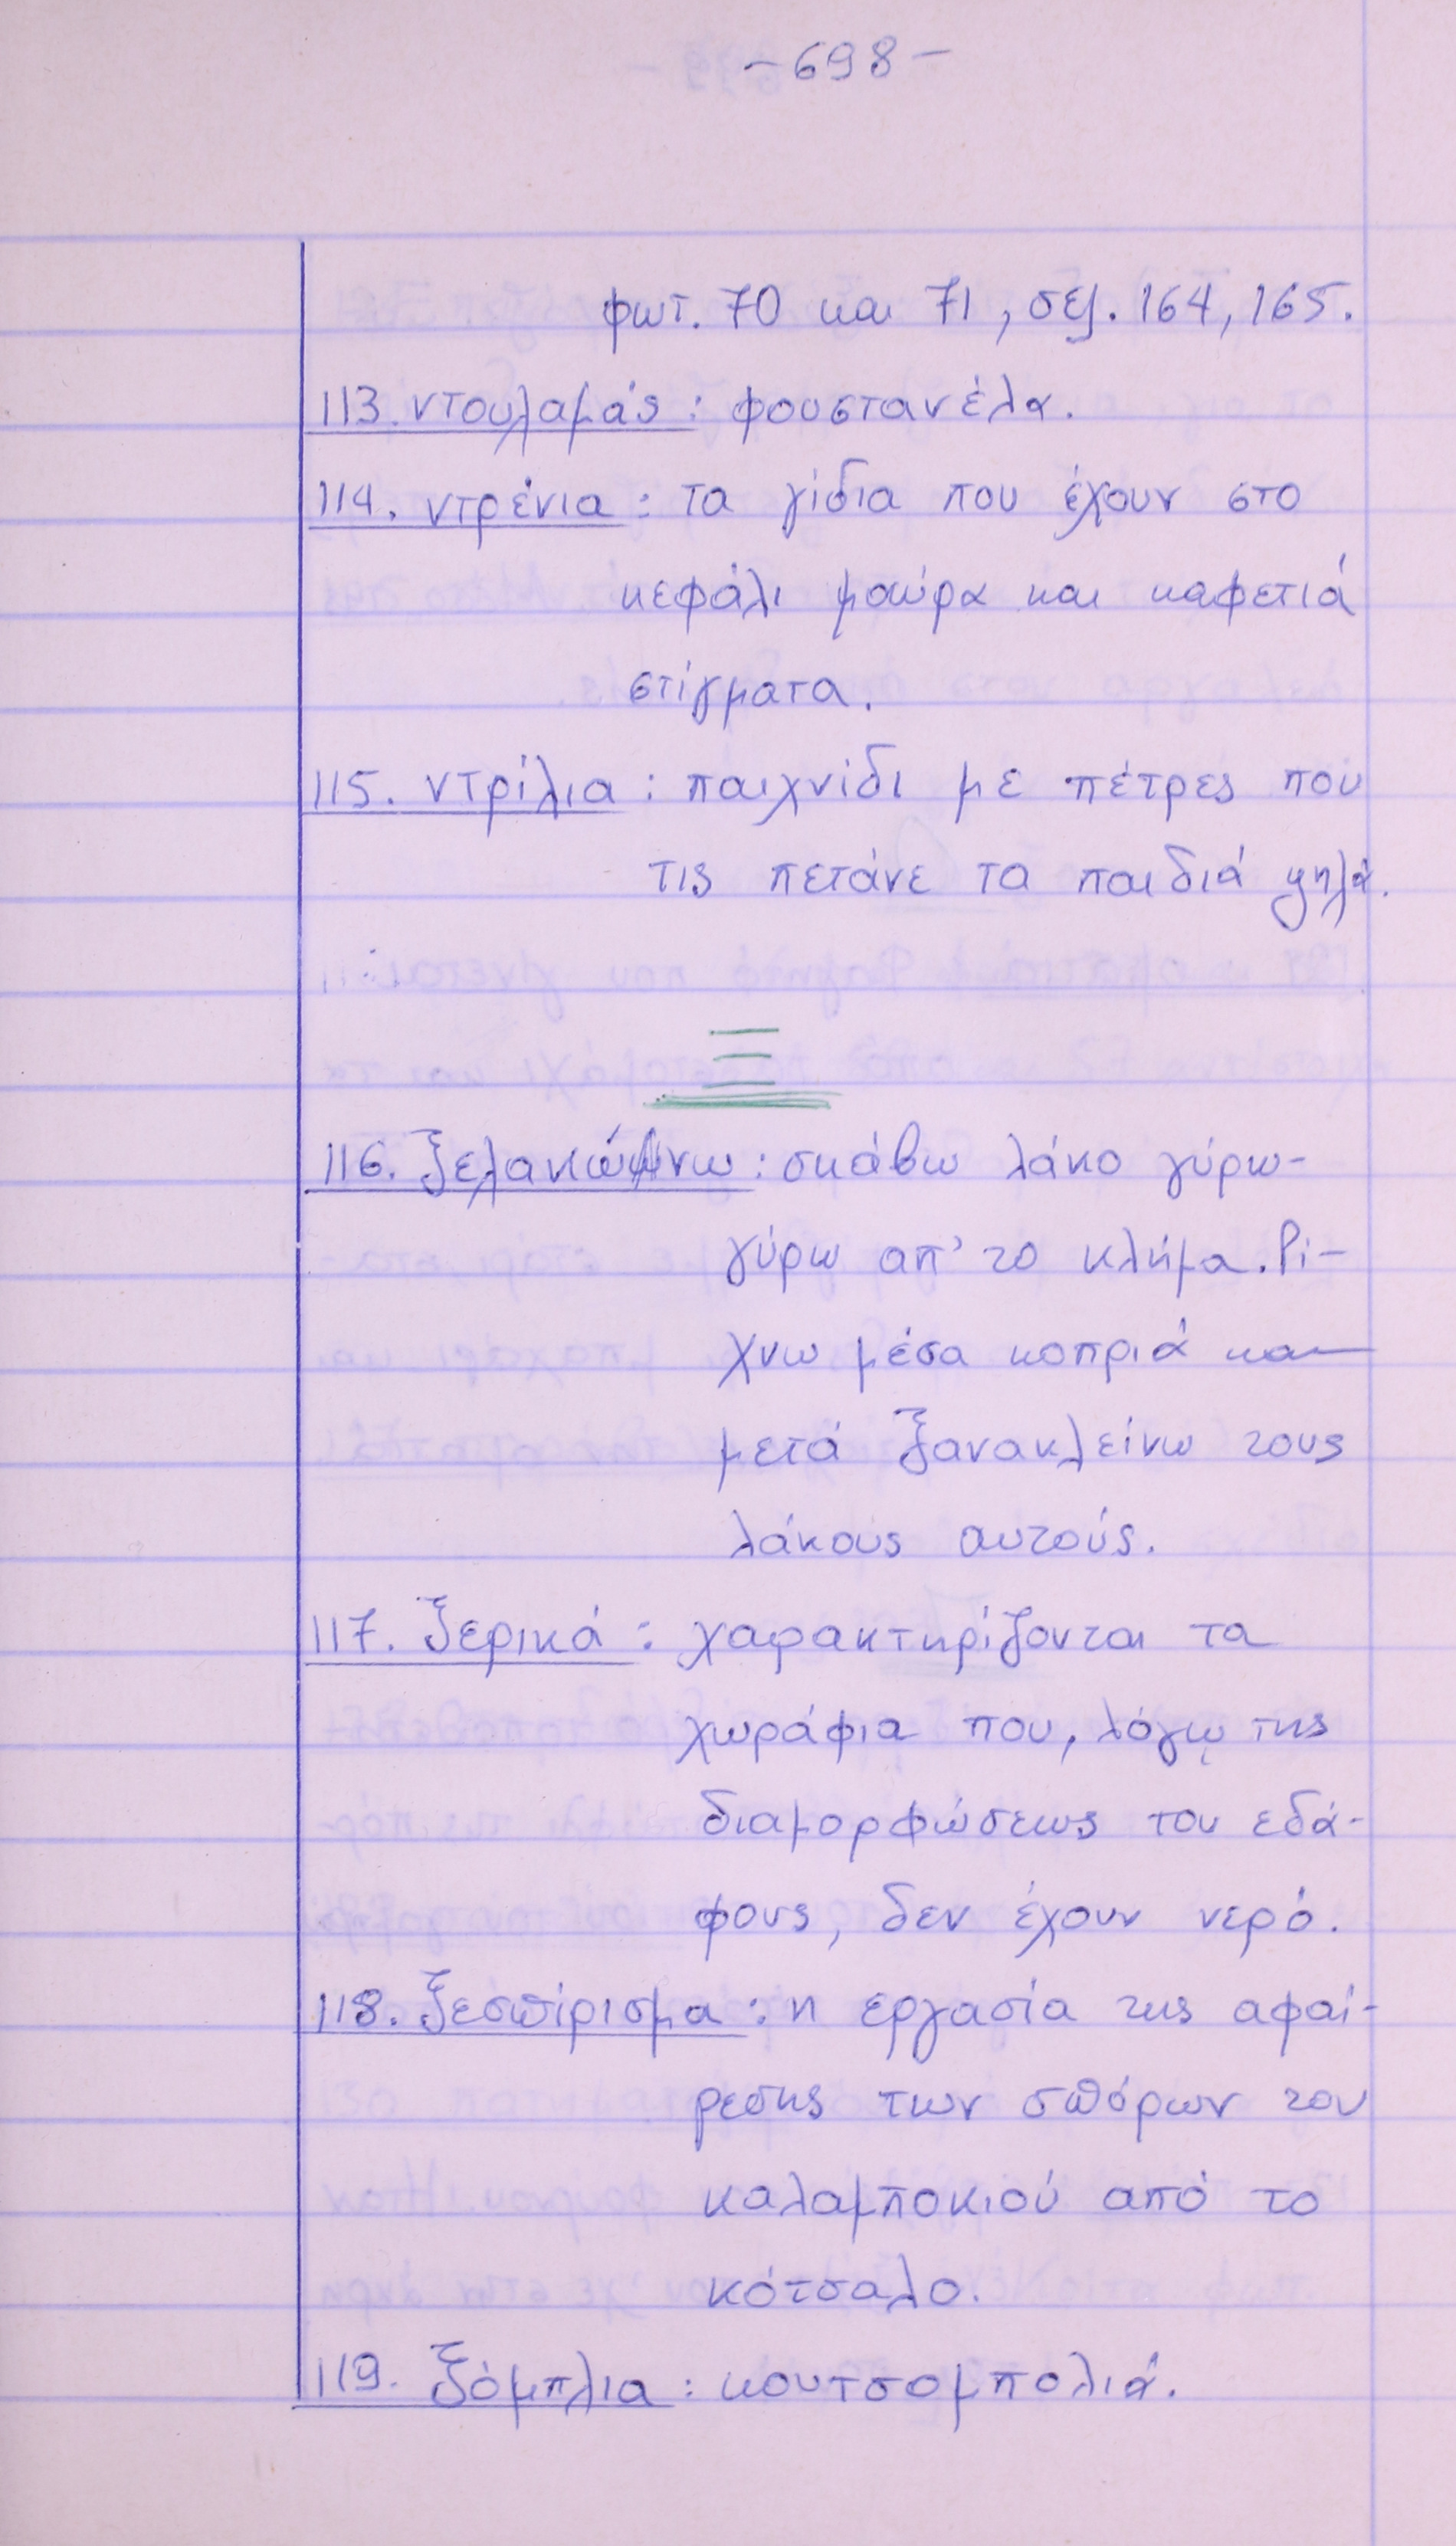 -698-
φωτ. 70 και 71, σελ. 164, 165.
113. ντουλαμάς: φουστανέλα.
114. ντρένια: τα γίδια που έχουν στο
κεφάλι μαύρα και καφετιά
στίγματα.
115. ντρίλια: παιχνίδι με πέτρες που
τις πετάνε τα παιδιά ψηλά.
Ξ
116. ξελακώνω: σκάβω λάκο γύρω-
γύρω απ' το κλήμα. Ρί-
χνω μέσα κοπριά και
μετά ξανακλείνω τους
λάκους αυτούς.
117. ξερικά: χαρακτηρίζονται τα
χωράφια που, λόγω της
διαμορφώσεως του εδά-
φους, δεν έχουν νερό.
118. ξεσπίρισμα: η εργασία της αφαί-
ρεσης των σπόρων του
καλαμποκιού από το
κότσαλο.
119. ξόμπλια: κουτσομπολιά.